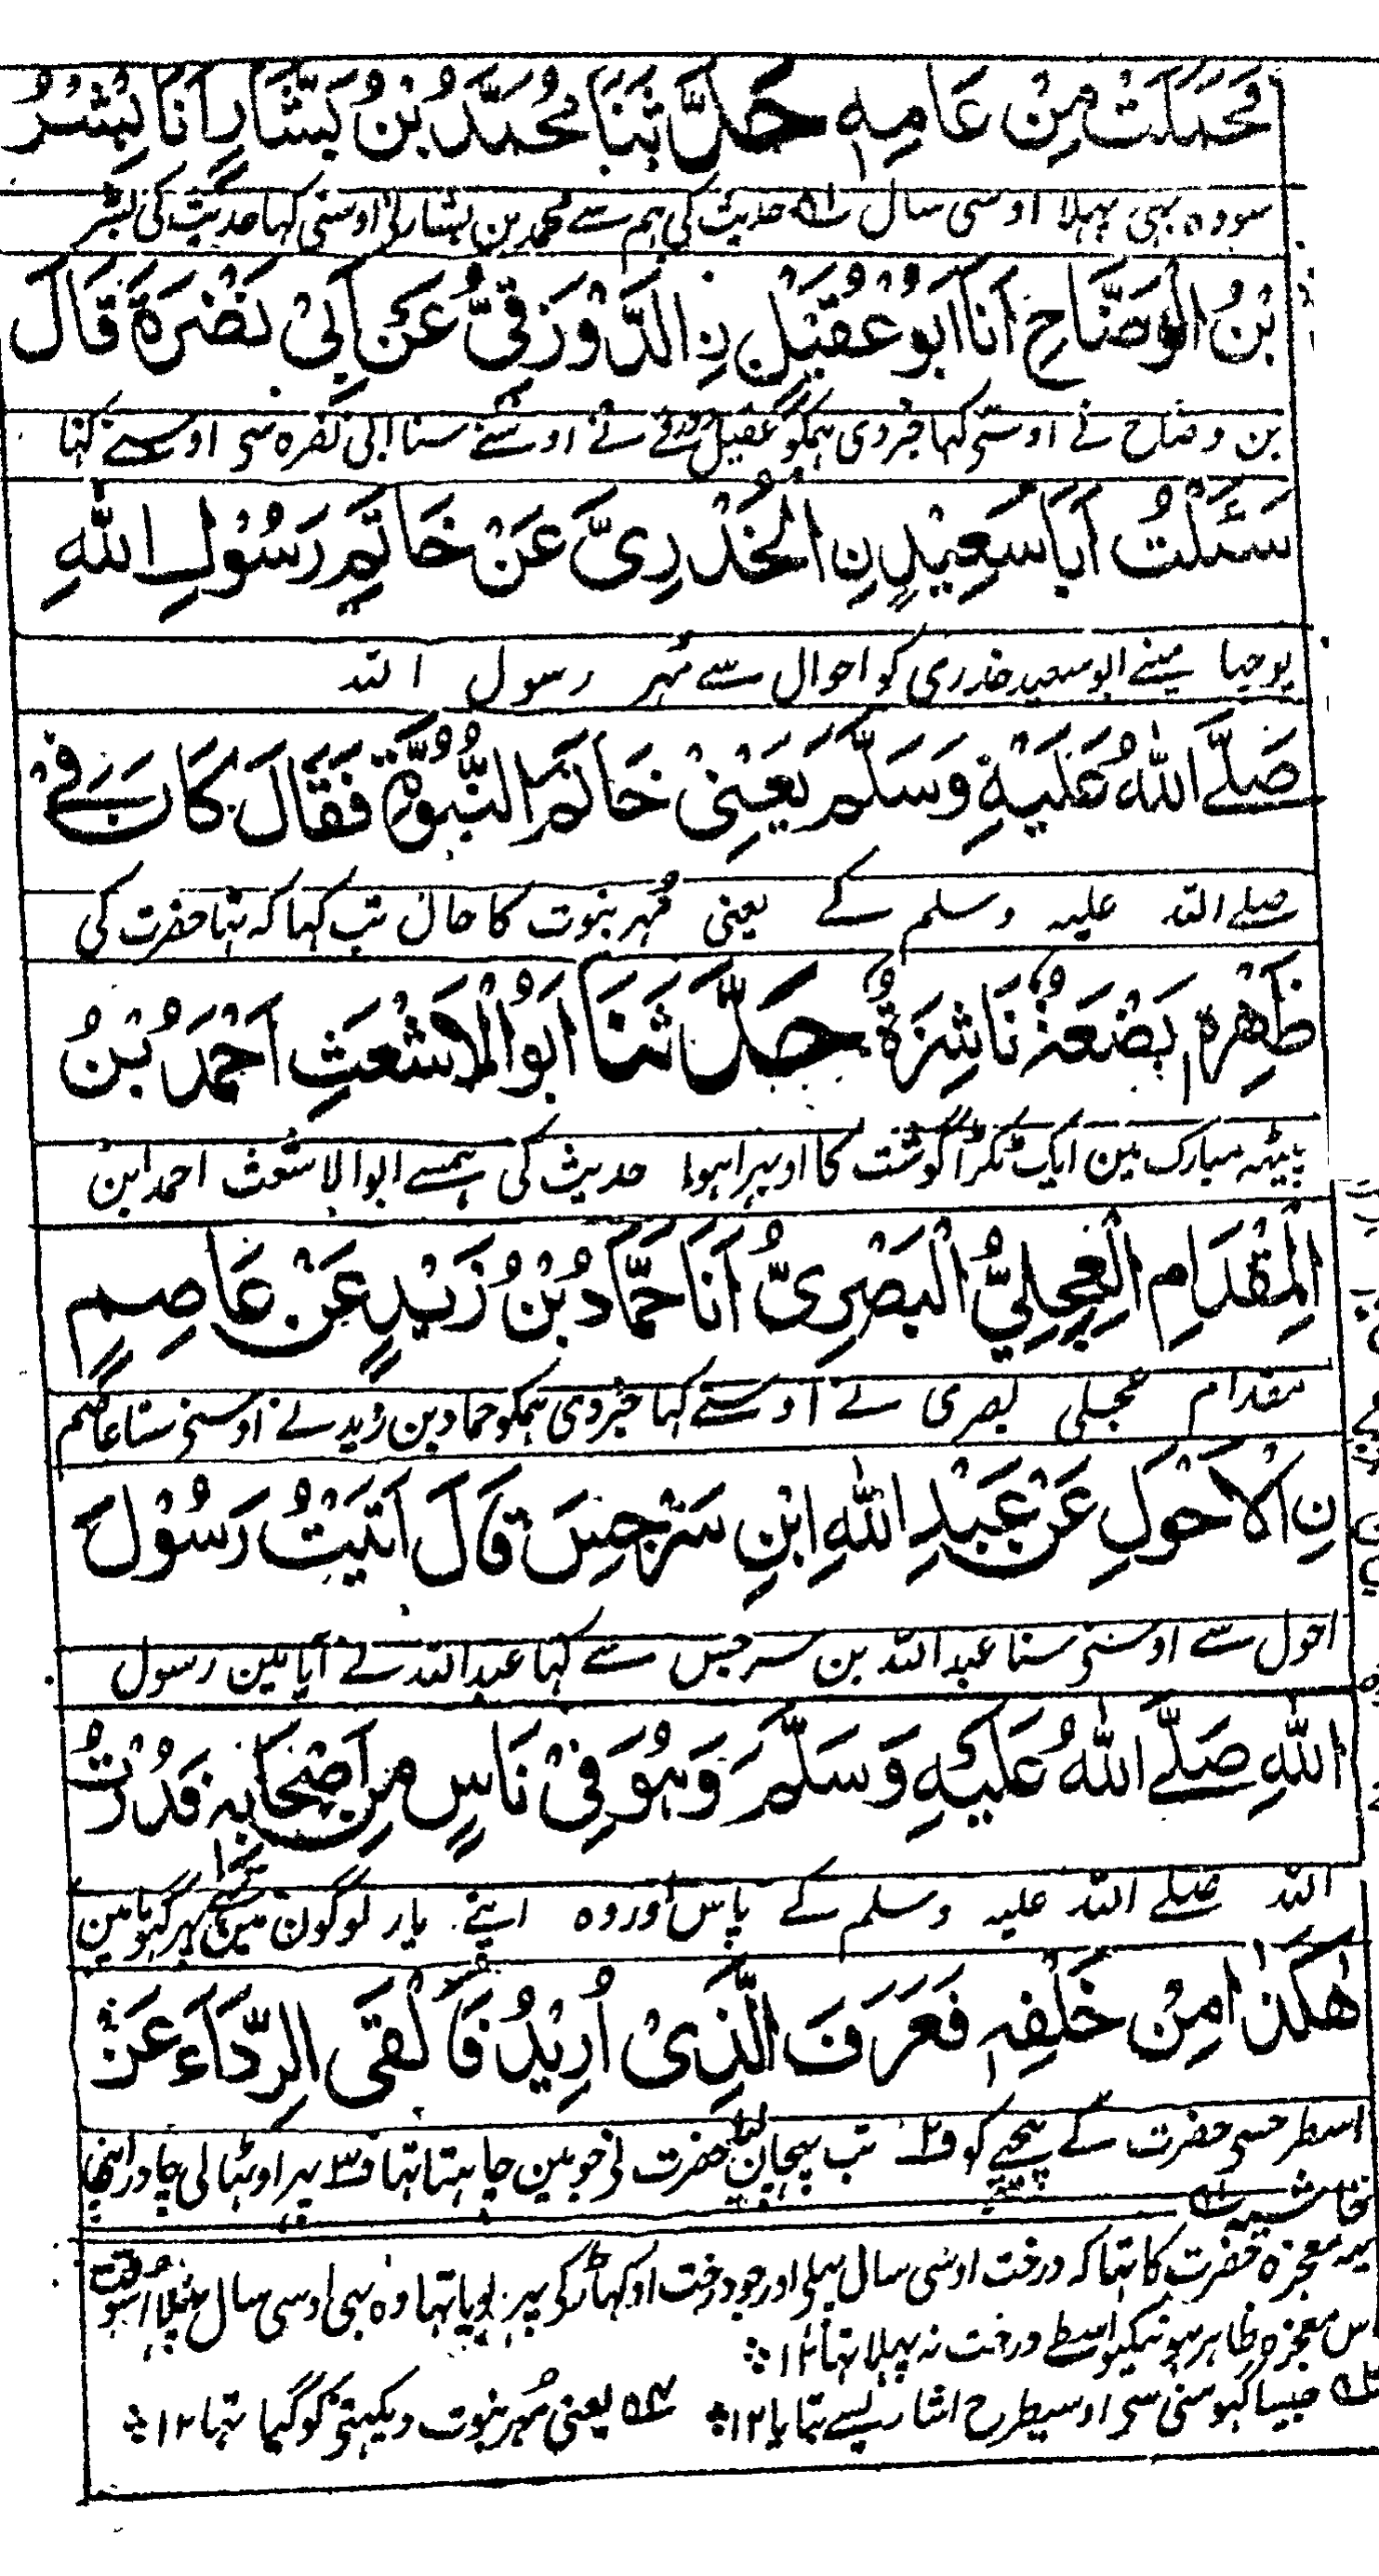 فَحَمَلَتْ مِنْ عَامِهٖ حَدَّثَنَا مُحَمَّدُ بْنُ بَشَّارٍ اَنَا بِشْرُ
سووہ بہی پہلا اوسی سال ف۱ حدیث کی ہم سے محمد بن بشار نے اوسنی کہا حدیث کی بشر
بْنُ الْوَضَّاحِ اَنَا اَبُوْ عُقَيْلِ نِ الدَّوْرَقِيُّ عَنْ اَبِيْ نَضْرَةَ قَالَ
بن وضاح نے اوسنی کہا خبر دی ہمکو عقیل دورقی نے اوسنے سنا ابی نضرہ سی اوسنے کہا
سَئَلْتُ اَبَا سَعِيْدٍ نِ الْخُدْرِيَّ عَنْ خَاتَمِ رَسُوْلِ اللّٰهِ
پوچہا مینے ابو سعید خدری کو احوال سے مُہر رسول اللہ
صَلَّے اللّٰهُ عَلَيْهِ وَسَلَّمَ يَعْنِيْ خَاتَمَ النُّبُوَّةِ فَقَالَ كَانَ فِيْ
صلے اللہ علیہ وسلم کے یعنی مُہر نبوت کا حال تب کہا کہ تہا حضرت کی
ظَهْرِهٖ بَضْعَةٌ نَاشِزَةٌ حَدَّثَنَا اَبُو الْاَشْعَثِ اَحْمَدُ بْنُ
پیٹہہ مبارک مین ایک ٹکڑا گوشت کا اوبہرا ہوا حدیث کی ہمسے ابو الاشعث احمد ابن
الْمِقْدَامِ الْعِجْلِيُّ الْبَصْرِيُّ اَنَا حَمَّادُ بْنُ زَيْدٍ عَنْ عَاصِمٍ
مقدام عجلی بصری نے اوسنے کہا خبر دی ہمکو حماد بن زید نے اوسنی سنا عاصم
نِ الْاَحْوَلِ عَنْ عَبْدِ اللّٰهِ ابْنِ سَرْجِسَ قَالَ اَتَيْتُ رَسُوْلَ
احول سے اوسنی سنا عبد اللہ بن سرجس سے کہا عبد اللہ نے آیا مین رسول
اللّٰهِ صَلَّے اللّٰهُ عَلَيْهِ وَسَلَّمَ وَهُوَ فِيْ نَاسٍ مِنْ اَصْحَابِهٖ فَدُرْتُ
اللہ صلے اللہ علیہ وسلم کے پاس اور وہ اپنے یار لوگون مین تہے پہر گہوما مین
هٰكَذَا مِنْ خَلْفِهٖ فَعَرَفَ الَّذِيْ اُرِيْدُ فَاَلْقَى الرِّدَاءَ عَنْ
اسطر حسی حضرت کے پیچہے کو ف۲ تب پہچان لیا حضرت نی جو مین چاہتا تہا ف۳ پہر اوٹہا لی چادر اپنی
حاشیہ ف۱
یہہ معجزہ حضرت کا تہا کہ درخت اوسی سال پہلی اور جو درخت اوکہاڑ کی پہر بویا تہا وہ بہی اوسی سال پہلا اسوقت
اس معجزہ ظاہر ہونیکیواسطے درخت نہ پہلا تہا ۱۲
ف۲ جیسا گہومنی سی اوسیطرح اشارے سے بتایا ۱۲ ف۳ یعنی مُہر نبوت دیکہنی کو گیا تہا ۱۲